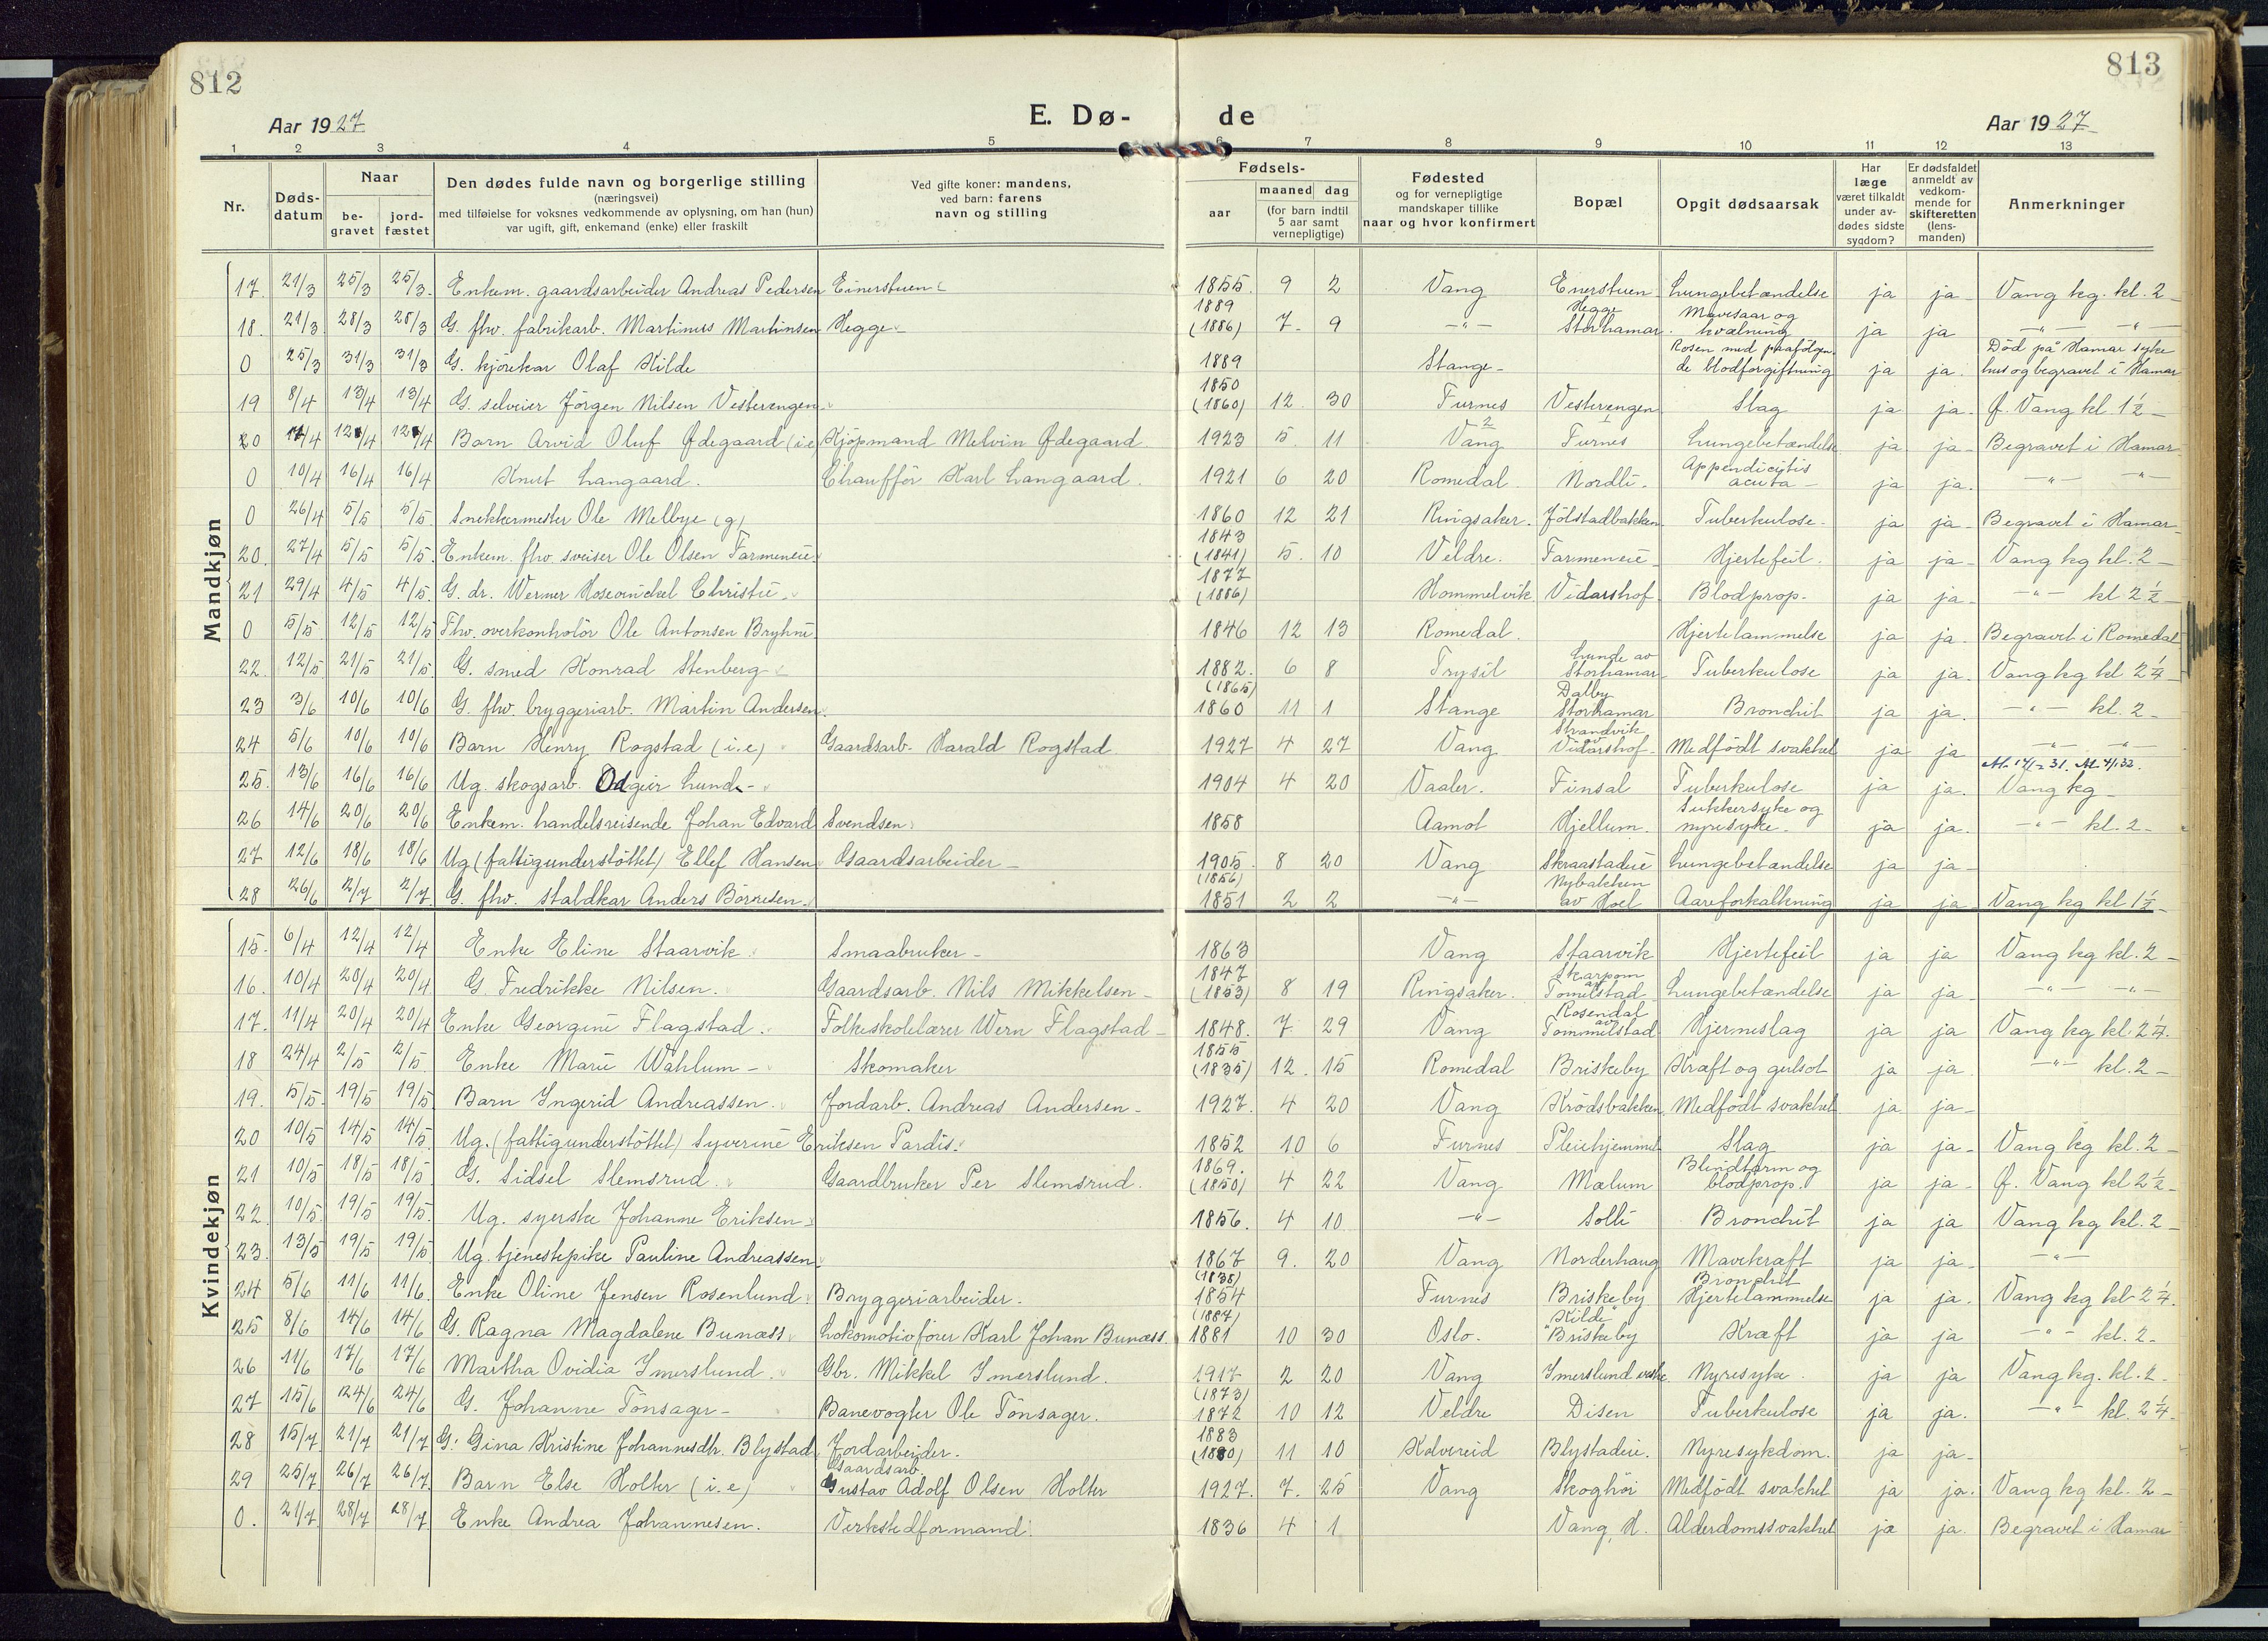 812
813
Aar 1927
E. Dø-
de
Aar 1927
1 2 3 4 5 6 7 8 9 10 11 12 13
Nr.
Døds-datum
Naar
be-gravet
jord-fæstet
Den dødes fulde navn og borgerlige stilling
(næringsvei)
med tilføielse for voksnes vedkommende av oplysning, om han (hun)
var ugift, gift, enkemand (enke) eller fraskilt
Ved gifte koner: mandens,
ved barn: farens
navn og stilling
Fødsels-
aar
maaned dag
(for barn indtil 5 aar samt vernepligtige)
Fødested
og for vernepligtige
mandskaper tillike
naar og hvor konfirmert
Bopæl
Opgit dødsaarsak
Har læge været tilkaldt under av-dødes sidste sygdom?
Er dødsfaldet anmeldt av vedkom-mende for skifteretten (lens-manden)
Anmerkninger
Mandkjøn
17. 21/3 25/3 25/3. Enkem. gaardsarbeider Andreas Pedersen Einerstuen 1855. 9 2 Vang Enerstuen Lungebetændelse ja ja Vang kg. kl. 2
18. 21/3 28/3 28/3 G. fhv. fabrikarb. Martinus Martinsen Hegge 1889 (1886) 7 9 -"- Hegge Storhamar Mavesaar og kvælning ja ja -"- -"-
0 25/3 31/3 31/3 G. kjørekar Olaf Kilde 1889 Stange Rosen med paafølgende blodforgiftning ja ja. Død på Hamar sykehus og begravet i Hamar
19 8/4 13/4 13/4 G. selveier Jörgen Nilsen Vesterengen 1850 (1860) 12 30 Furnes Vesterengen Slag ja ja. f. Vang kl 1½
20 12/4 12/4 Barn Arvid Oluf Ødegaard (i.e) Kjöpmand Melvin Ødegaard 1923 5 11 Vang Furnes Lungebetændelse ja ja Begravet i Hamar
0 10/4 16/4 16/4 Knut Langaard. Chaufför Karl Langaard. 1921 6 20 Romedal Nordli Appendicitis acuta ja ja. -"- -"-
0 26/4 5/5 5/5. Snekkermester Ole Melbye (g) 1860 12 21 Ringsaker. Jölstadbakken Tuberkulose ja ja Begravet i Hamar
20. 27/4 5/5 5/5. Enkem. fhv. sveiser Ole Olsen Farmeneie 1843 (1841) 5. 10 Veldre. Farmeneie Hjertefeil. ja ja Vang kg kl. 2
21 29/4 4/5 4/5. G. dr. Werner Hosewinckel Christie 1877 (1886) Hommelvik Vidarshof Blodprop. ja ja -"- kl 2½
0 5/5 12/5 12/5 Fhv. overkontrolör Ole Antonsen Bryhni 1846 12 13 Romedal. Hjertelammelse ja ja Begravet i Romedal
22. 12/5 21/5 21/5. G. smed Konrad Stenberg 1882. 6 8 Trysil Lunde av Storhamar Tuberkulose ja ja Vang kg kl 2¼
23 3/6 10/6 10/6 G. fhv. bryggeriarb. Martin Andersen. (1865) 1860 11 1 Stange Dalby Storhamar Bronchit ja ja. -"- kl. 2
24 5/6 10/6 10/6 Barn Henry Rogstad (i.e) Gaardsarb. Harald Rogstad. 1927 4 27 Vang Strandvik Vidarshof Medfödt svakhet ja ja -"- -"-
25. 13/6 16/6 16/6 Ug. skogsarb. Odgeir Lund 1904 4 20 Vaaler. Finsal Tuberkulose ja ja. Vang kg
26 14/6 20/6 20/6 Enkem. handelsreisende Johan Edvard Svendsen 1858 Aamot Hjellum. Sukkersyke og nyresyke. ja ja. -"- kl. 2
27 12/6 18/6 18/6 Ug (fattigunderstöttet) Ellef Hansen Gaardsarbeider 1905 8 20 Vang Skraastadeie Lungebetændelse ja ja
28 26/6 2/7 2/7. G. fhv. staldkar Anders Börresen. (1856) 1851 2 2 -"- Nybakken av Hoel Aareforkalkning ja ja Vang kg kl 1½
Kvindekjøn
15. 6/4 12/4 12/4 Enke Eline Staarvik Smaabruker 1863 Vang Staarvik Hjertefeil ja ja Vang kg kl. 2
16. 10/4 20/4 20/4 G. Fredrikke Nilsen. Gaardsarb. Nils Mikkelsen 1847 (1853) 8 19 Ringsaker. Tomelstad Lungebetændelse ja ja -"- -"-
17. 11/4 20/4 20/4 Enke Georgine Flagstad. Folkeskolelærer Wern Flagstad 1848. 7. 29 Vang Rosendal av Tommelstad Hjerneslag ja ja Vang kg kl 2¼.
18 24/4 2/5 2/5. Enke Marie Wahlum Skomaker 1855 (1835) 12. 15 Romedal Briskeby Kræft og gulsot ja ja -"- kl. 2
19. 5/5 19/5 19/5 Barn Ingerid Andreassen. Jordarb. Andreas Andersen 1927. 4 20 Vang Krödsbakken Medfödt svakhet ja ja
20 10/5 14/5 14/5. Ug. (fattigunderstöttet) Syverine Eriksen Pardis. 1852 10 6 Furnes Pleiehjemmet Slag ja ja Vang kg kl. 2
21 10/5 18/5 18/5. G. Sidsel Slemsrud. Gaardbruker Per Slemsrud. 1869. (1850) 4 22 Vang Mælum Blindtarm og blodprop. ja ja f. Vang kl 2½
22. 10/5. 19/5 19/5. Ug. syerske Johanne Eriksen 1856. 4 10 -"- Solli Bronchit ja ja Vang kg kl. 2
23. 13/5 19/5 19/5 Ug. tjenestepike Pauline Andreassen 1867 9. 20 Vang Norderhaug Mavekræft ja ja -"-
24 5/6 11/6 11/6. Enke Oline Jensen Rosenlund Bryggeriarbeider. (1838) 1854 Furnes Briskeby Bronchit Hjertelammelse ja ja. Vang kg kl 2¼.
25 8/6 14/6 14/6 G. Ragna Magdalene Bunæss Lokomotivförer Karl Johan Bunæss. (1887) 1881 10 30 Oslo. "Kilde" Briskeby Kræft ja ja -"- kl. 2
26 11/6 17/6 17/6 Martha Ovidia Imerslund. Gbr. Mikkel Imerslund. 1917 2 20 Vang Imerslund Nyresyke. ja ja Vang kg. kl. 2
27 15/6 24/6 24/6 G. Johanne Tönsager Banevogter Ole Tönsager. (1873) 1872 10 12 Veldre Disen Tuberkulose ja ja. -"- kl. 2¼
28 15/7 21/7 21/7 G. Gina Kristine Johannesdtr. Blystad Jordarbeider. 1883 (1880) 11 10 Kolvereid Blystadeie. Nyresykdom. ja ja
29 25/7 26/7 26/7 Barn Else Holter (i.e) Gaardsarb. Gustav Adolf Olsen Holter 1927. 7. 25 Vang Skoghöi Medfödt svakhet ja ja. Vang kg kl. 2
0. 21/7 28/7 28/7 Enke Andrea Johannesen. Verkstedformand. 1836 4 1 Vang, H. Alderdomssvakhet ja ja. Begravet i Hamar